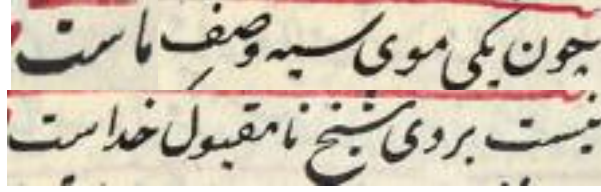 چون یکی موی سیه وصف ماست
نیست بر وی شیخ نامقبول خداست